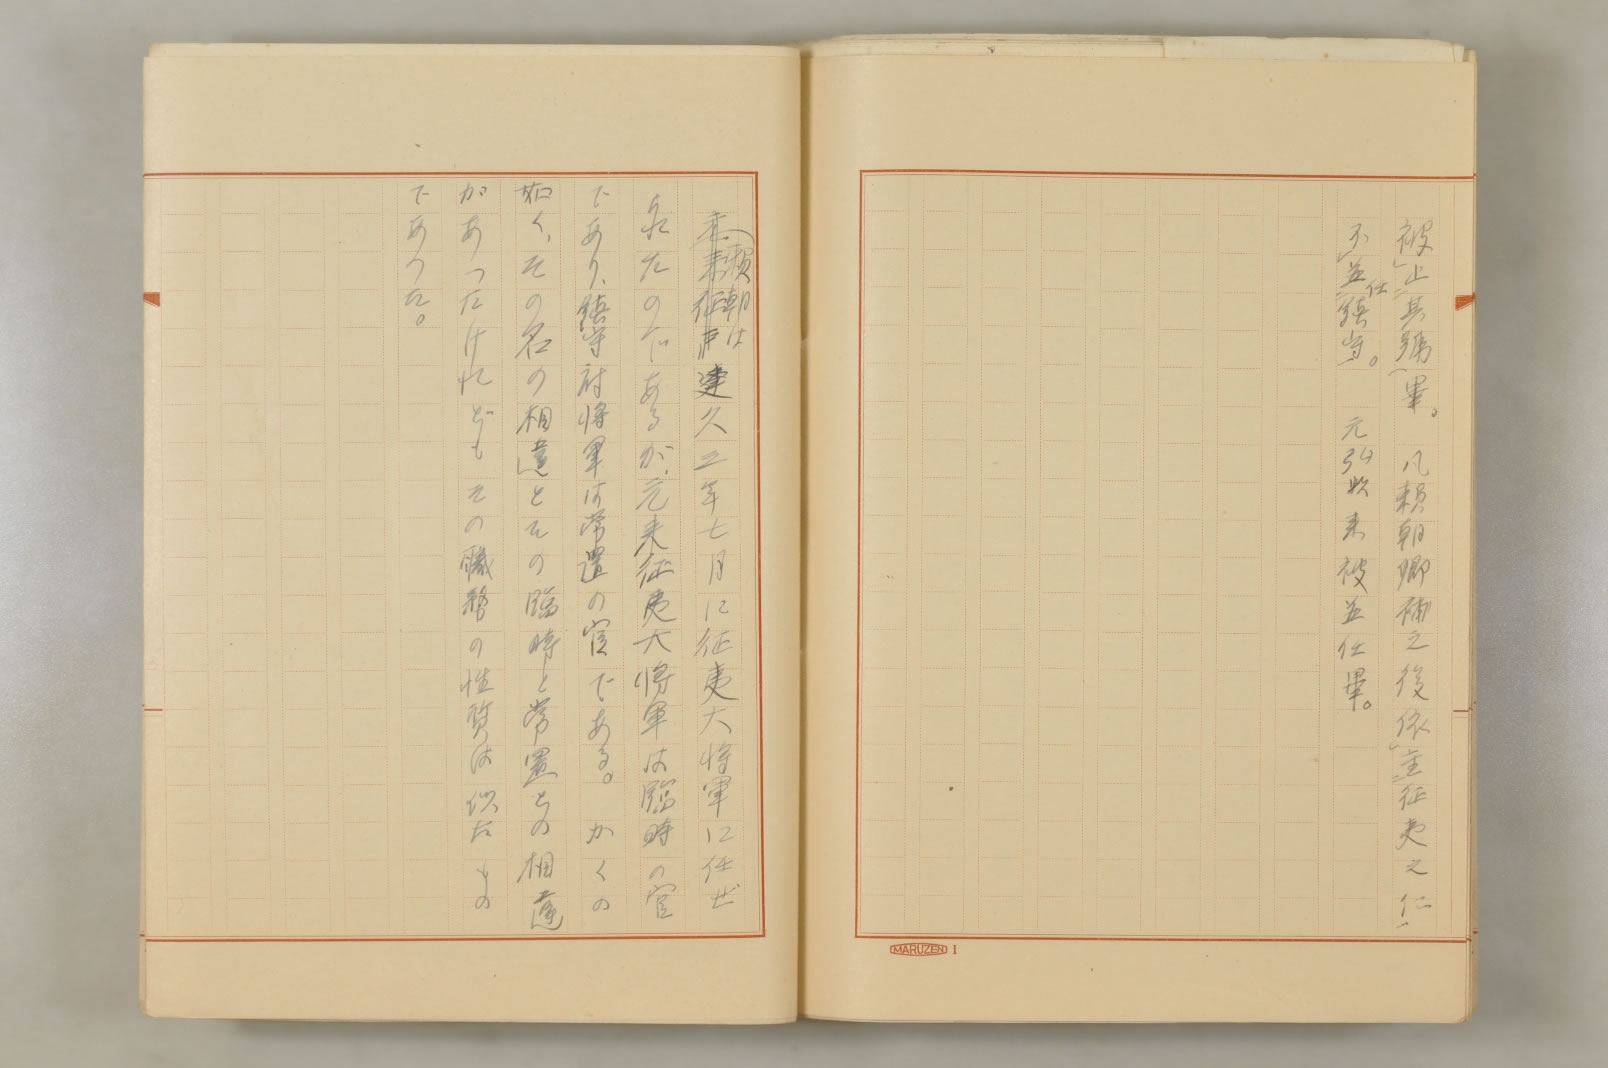 被止其號畢。凡賴朝卿補之後依重征夷之仁
不並仕鎮守。元弘以来被並仕畢。
MARUZEN 1
賴朝は
建久三年七月に征夷大将軍に任ぜ
られたのであるが、元来征夷大将軍は臨時の官
であり、鎮守府将軍は常置の官である。かくの
如く、その名の相違とその臨時と常置との相違
があったけれどもその職務の性質は似たもの
であつた。